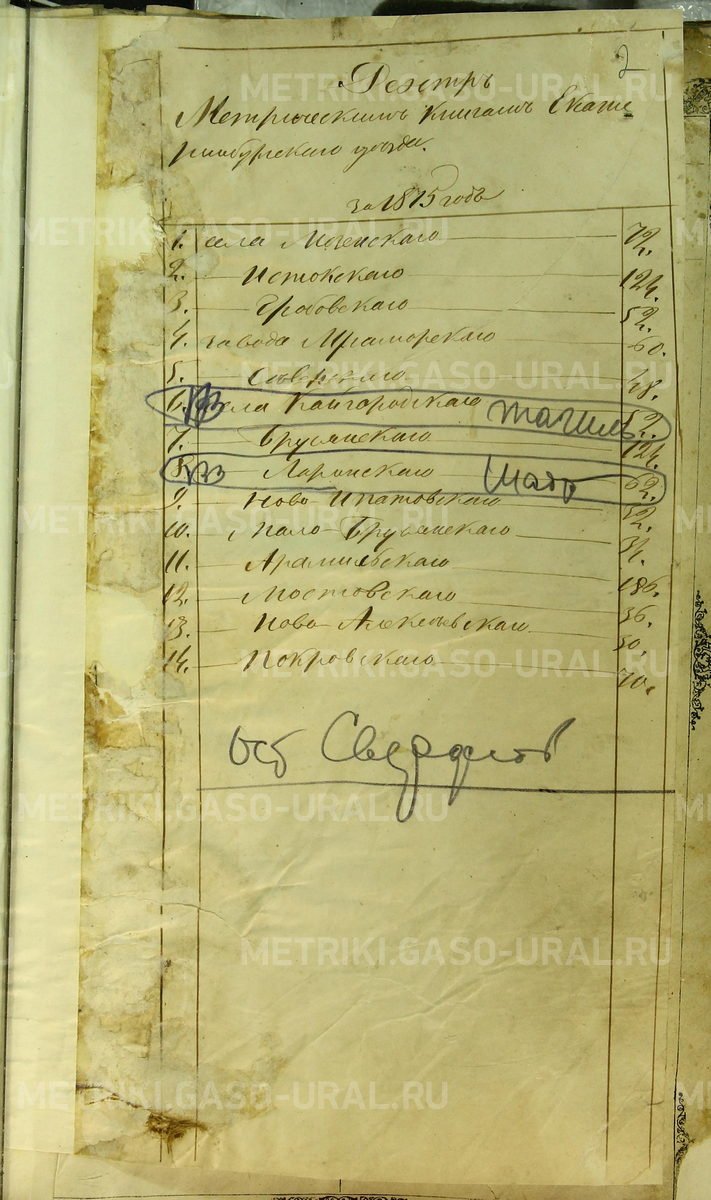 2
Реэстръ
Метрическимъ книгамъ Екате
ринбурскаго уѣзда.
за 1875 годъ
1. села Логинскаго 72.
2. — Истокскаго 124.
3. — Гробовскаго 52.
4. завода Мраморскаго 60.
5. — Сѣверскаго 48.
6. села Кайгородскаго Тагил 52.
7. — Брусянскаго 124.
8. — Ларинскаго Шаб 62.
9. — Ново-Ипатовскаго 52.
10. — Мало-Брусянскаго
11. — Арамильскаго 186.
12. — Мостовскаго 36.
13. — Ново-Алексѣевскаго 50.
14. — Покровскаго 70.
ост Свердлов
METRIKI.GASO-URAL.RU